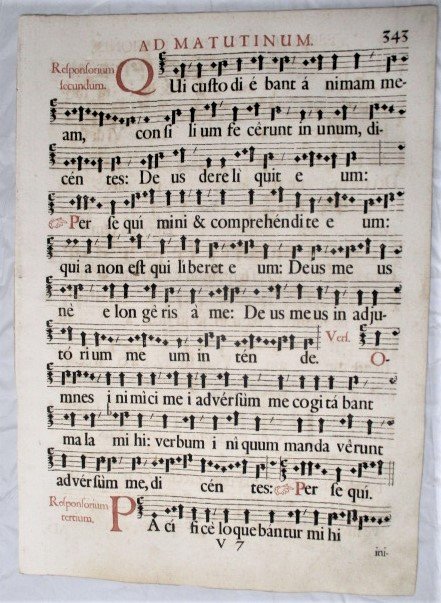 AD MATUTINUM. 343
Responsorium secundum. QUi custo di é bant á nimam me-
am, con si li um fe cérunt in unum, di-
cén tes: De us dere li quit e um:
Per se qui mini & comprehéndi te e um:
qui a non est qui li beret e um: Deus me us
nè e lon gè ris à me: De us me us in adju-
tó ri um me um in tén de. Vers. O-
mnes i ni mi ci me i advérsùm me cogi tá bant
ma la mi hi: verbum i nì quum manda vérunt
advérsùm me, di cén tes: Per se qui.
Responsorium tertium. PA cí fi cè lo que bán tur mi hi
V 7 ini-